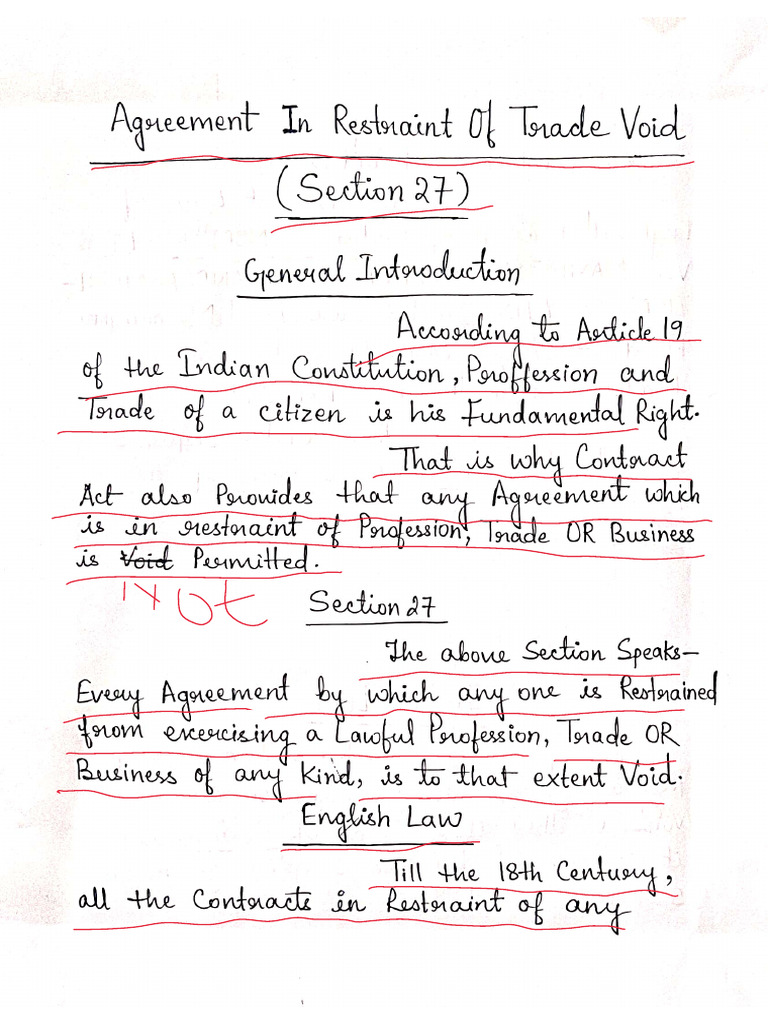 Agreement In Restraint Of Trade Void
(Section 27)
General Introduction
According to Article 19
of the Indian Constitution, Proffession and
Trade of a citizen is his Fundamental Right.
That is why Contract
Act also Provides that any Agreement which
is in restraint of Profession, Trade OR Business
is Void Permitted.
Not
Section 27
The above Section Speaks-
Every Agreement by which any one is Restrained
from exercising a Lawful Profession, Trade OR
Business of any Kind, is to that extent Void.
English Law
Till the 18th Century,
all the Contracts in Restraint of any